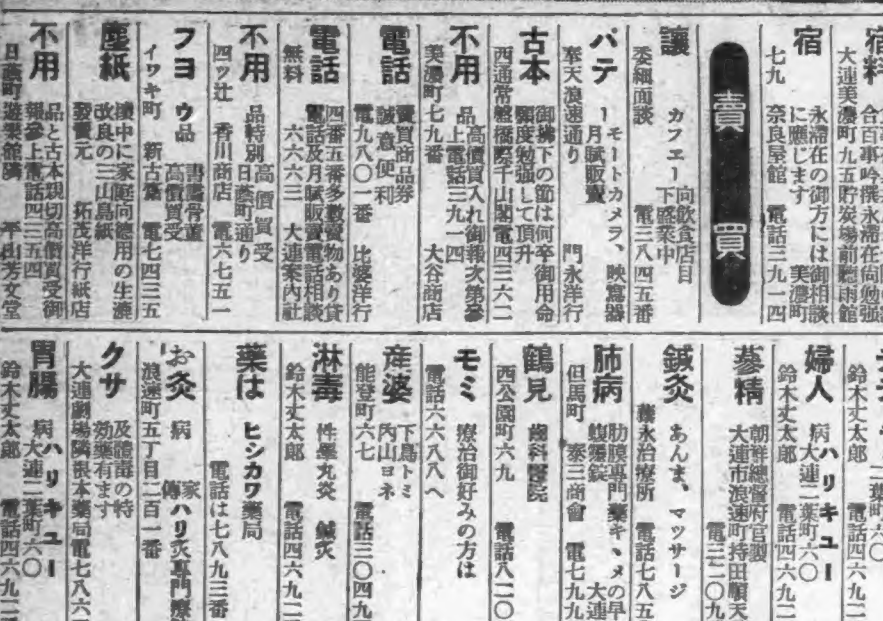 宿料
合宿百事吟撰永滞在尚勉强
大連美濃町九五貯炭場前聽雨館
宿
永滞在の御方には御相談
に應じます 美濃町
七九 奈良屋館 電話三九一四
賣買
讓
カフエー向飲食店目
下盛業中
委細面談 電三八四五番
パテ
ーモートカメラ、映寫器
月賦販賣
奉天浪速通り 門永洋行
古本
御拂下の節は何卒御用命
額度勉强して頂升
西通常盤橋際千山閣電四三六二
不用
品高價買入れ御報次第參
上電話三九一四
美濃町七九番 大谷商店
電話
賣買商品券
誠意便利
電九八〇一番 比婆洋行
電話
四番五番多數賣物あり貸
電話及月賦販賣電話相談
無料 六六六三 大連案內社
不用
品特別高價買受
日蔭町通り
四ツ辻 香川商店 電六七五一
フヨ
ウ品 書畵骨董
高價買受
イワキ町 新古齋 電七四三五
塵紙
懐中に家庭向德用の生漉
改良の三山島紙
發賣元 拓茂洋行紙店
不用
品と古本現切高價買受御
報參上電話四三五四
日蔭町遊樂館隣 平山芳文堂
二葉町六〇
鈴木丈太郎 電話四六九二
婦人
病ハリキユー
大連二葉町六〇
鈴木丈太郎 電話四六九二
蔘精
朝鮮總督府官製
大連市浪速町持田順天
電三二〇九
鍼灸
あんま、マツサージ
藤永治療所 電話七八五
肺病
肋膜專門藥キヽメの早
大連
但馬町 泰三商會 電七九九
鶴見
齒科醫院
西公園町六九 電話八二〇
モミ
療治御好みの方は
電話六六八八へ
産婆
下島トミ
內山ヨネ
能登町六七 電話三〇四九
淋毒
性睾丸炎 鍼灸
鈴木丈太郎 電話四六九二
藥は
ヒシカワ藥局
電話は七八九三番
お灸
病 家傳ハリ灸專門療
浪速町五丁目二百一番
クサ
及體毒の特
効藥有ます
大連劇場隣根本藥局電七八六
胃腸
病ハリキユー
大連二葉町六〇
鈴木丈太郎 電話四六九二